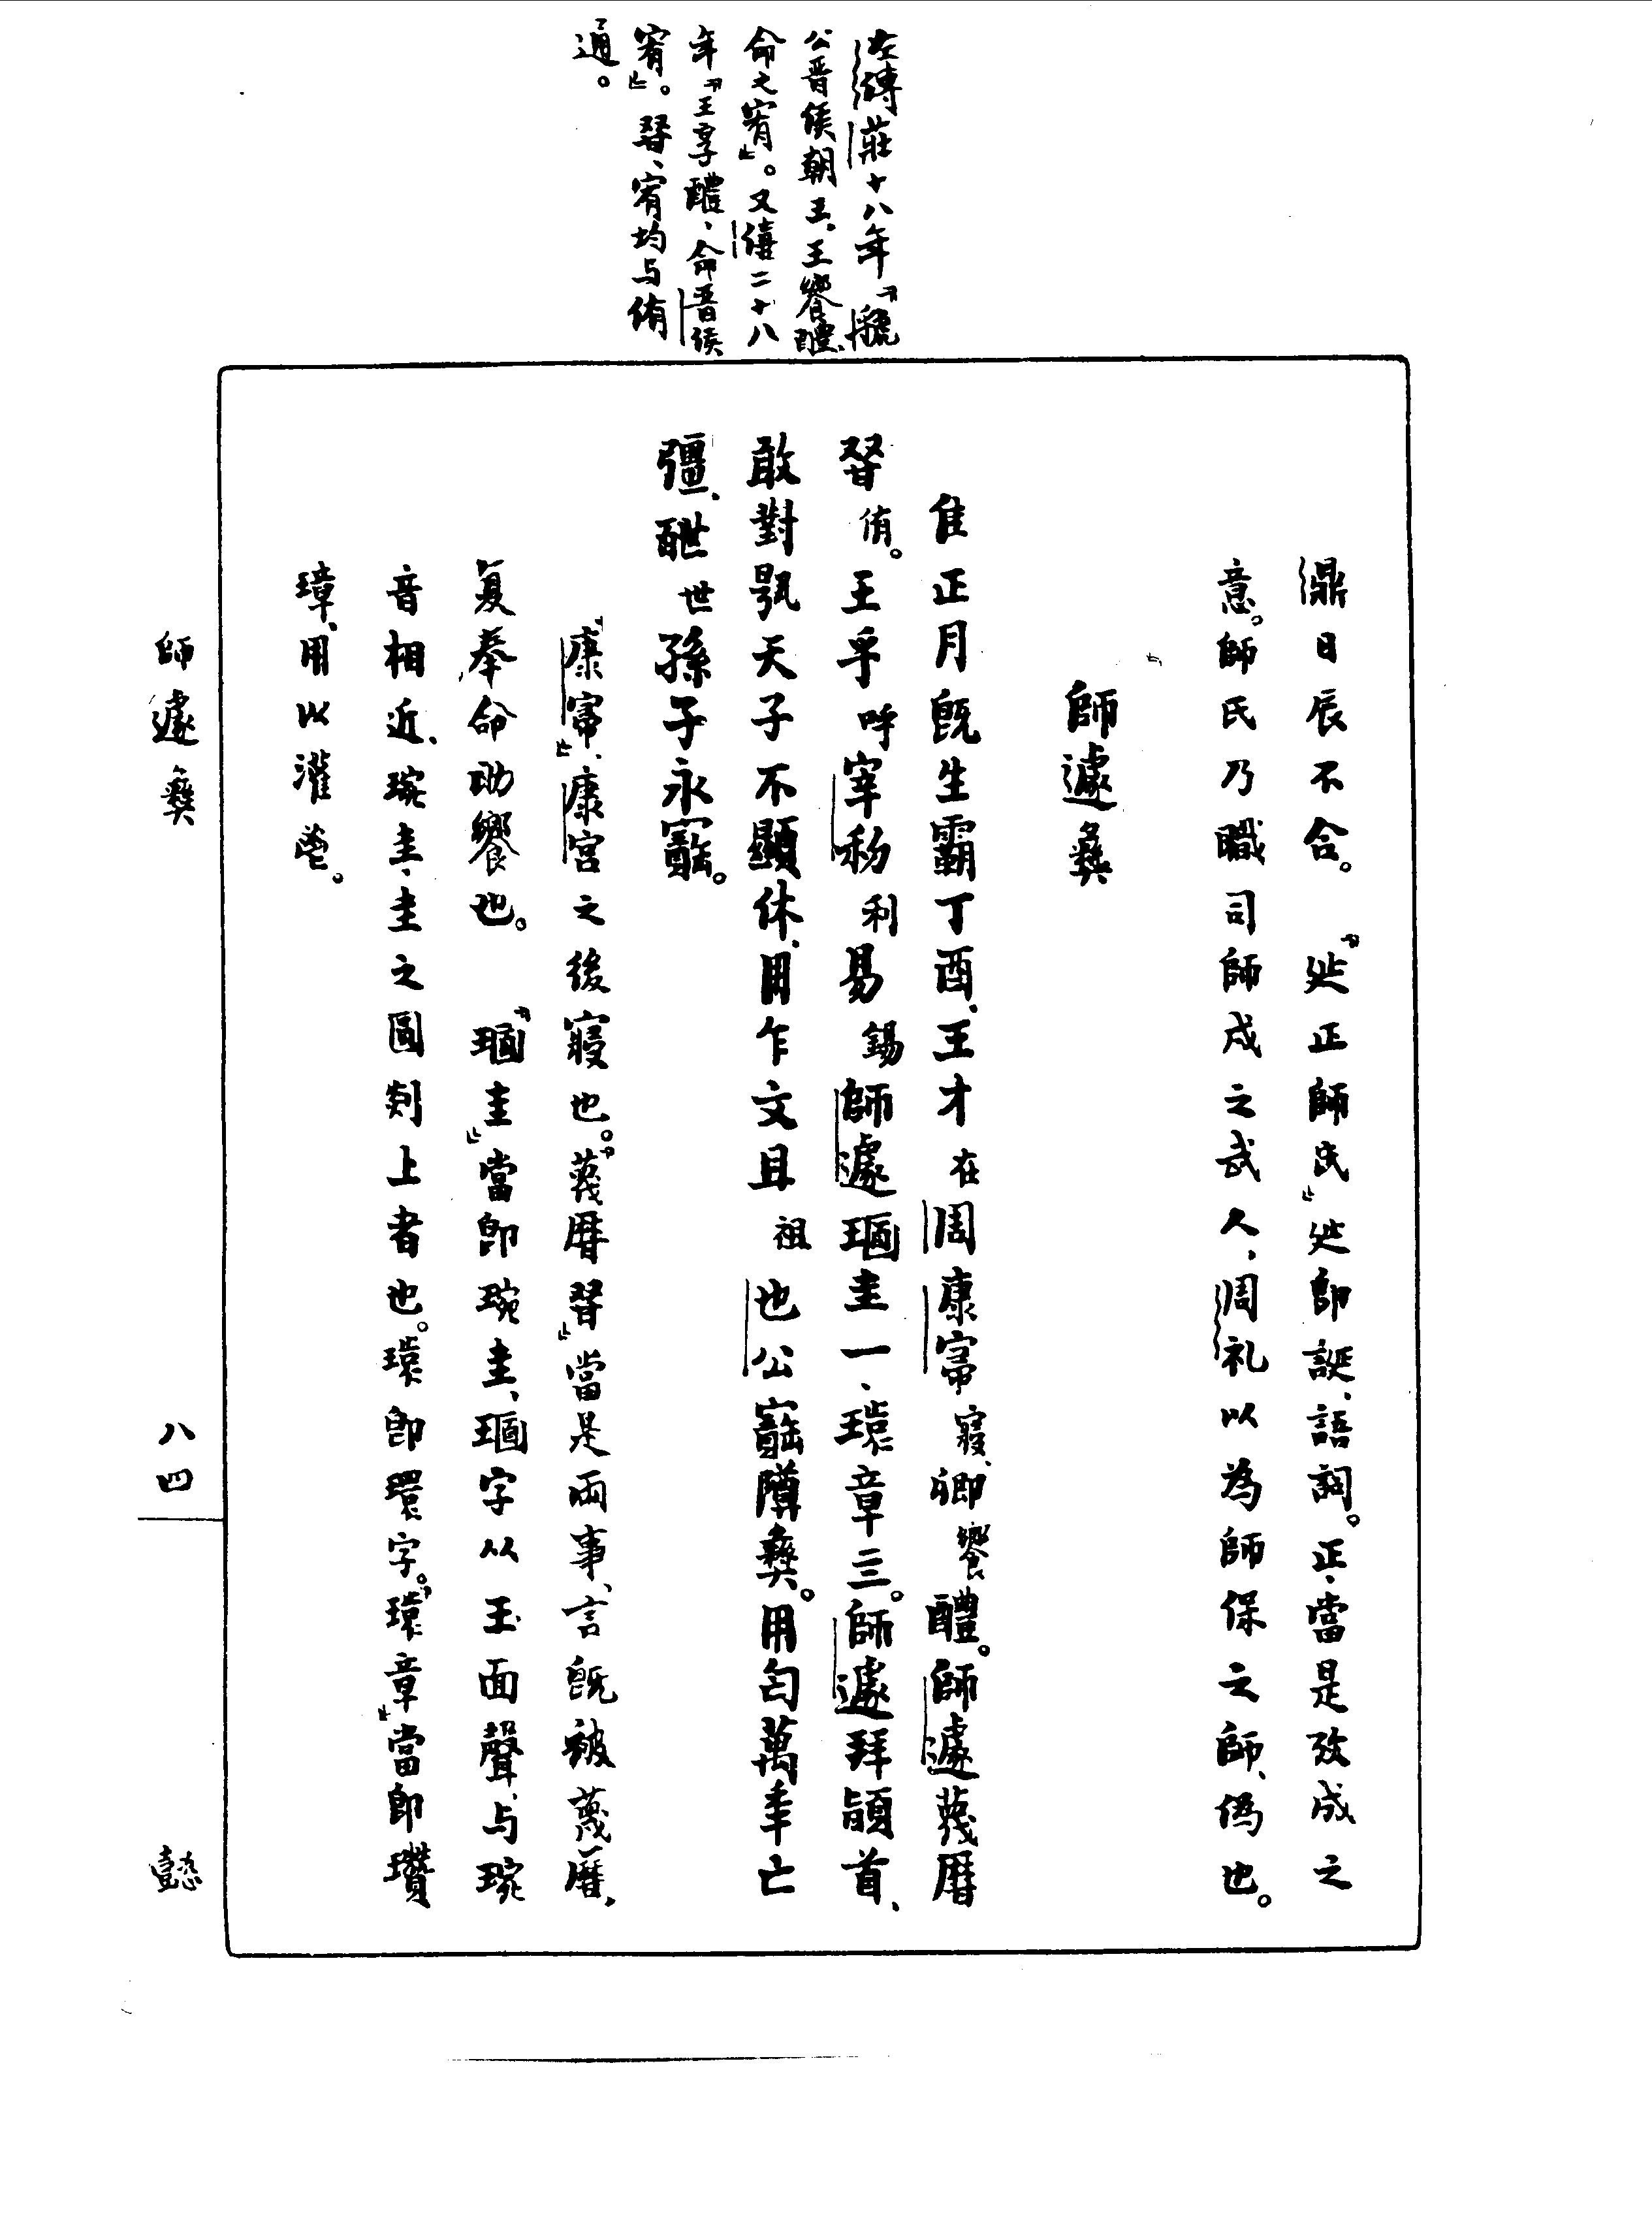 左傳莊十八年「虢
公晋侯朝王，王饗醴，
命之宥」。又僖二十八
年「王享醴，命晋侯
宥」。㕛、宥均与侑
通。
鼎日辰不合。「𢓊正師氏」𢓊即誕，語詞。正，當是攷成之
意。師氏乃職司師戍之武人，周礼以為師保之師，偽也。
師遽彝
隹正月既生霸丁酉，王才在周康寢，卿饗醴。師遽蔑曆
侑。王乎呼宰利易錫師遽𤨒圭一、環章三。師遽拜𩒨首，
敢對𩁹天子不顯休，用乍文且祖也公寶䵼彝。用匄萬年亡
彊，世孫子永寶。
「康寢」，康宮之後寢也。「蔑曆㕛」當是兩事，言既被蔑曆，
复奉命助饗也。「𤨒圭」當即琬圭，𤨒字从玉面聲，与琬
音相近，琬圭，圭之圜剡上者也。環即環字。「環章」當即瓚
璋，用以灌鬯。
師遽彝
八四
懿